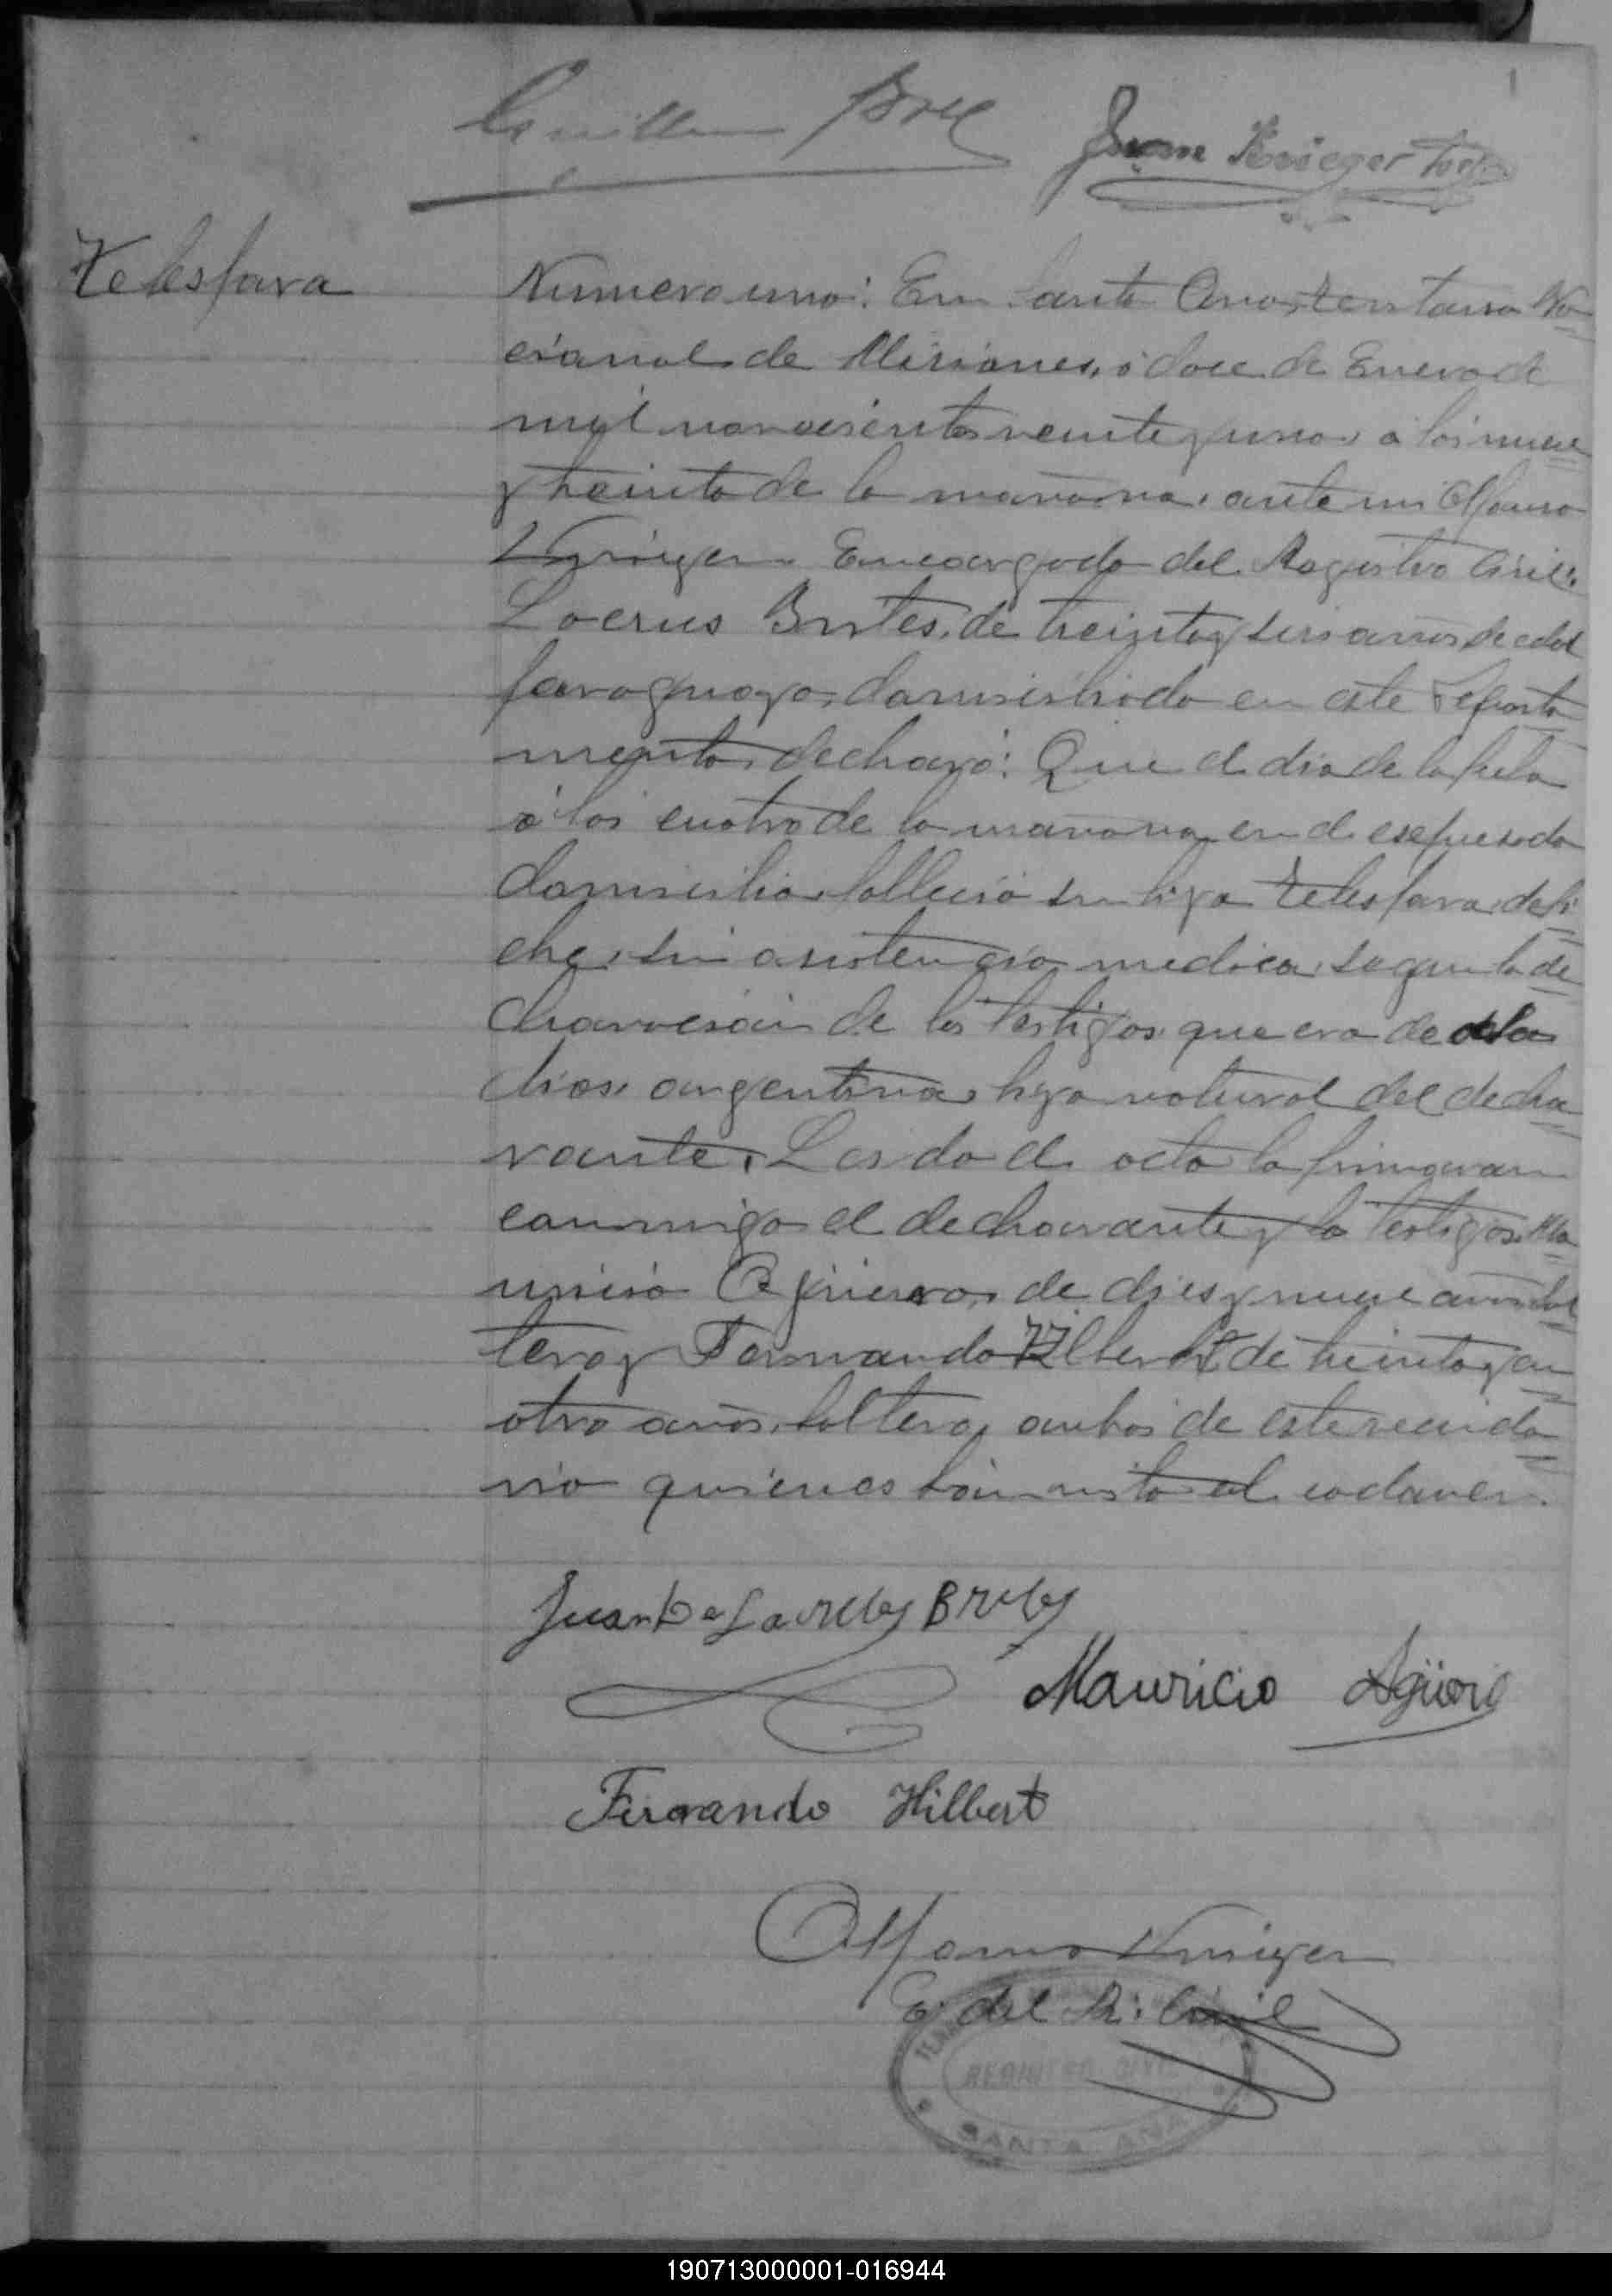 1
Telesfora
Numero uno: En Santa Ana, territorio Na=
cional de Misiones, á doce de Enero de
mil novecientos veinte y uno, a las nueve
y treinta de la mañana, ante mi Alfonso
Encargado del Registro Civil,
Brites, de treinta y seis años de edad
paraguayo, domiciliado en este Departa
mento, declaró: Que el dia de la fecha
á las cuatro de la mañana en el expresado
domicilio, falleció su hija Telesfora, de fi
ebre, sin asistencia medica, segun la de=
claracion de los testigos, que era de dos
dias, argentina, hija natural del decla=
rante. Leida el acta la firmaron
conmigo el declarante y los testigos, Ma=
uricio Agüero, de diez y nueve años, sol=
tero y Fernando Hilbert de treinta y cu=
atro años, soltero, ambos de este vecinda=
rio quienes han visto el cadaver.
Juan De Brites
Mauricio Agüero
Fernando Hilbert
Alfonso
E. del R. Civil
REGISTRO CIVIL
SANTA ANA
190713000001-016944